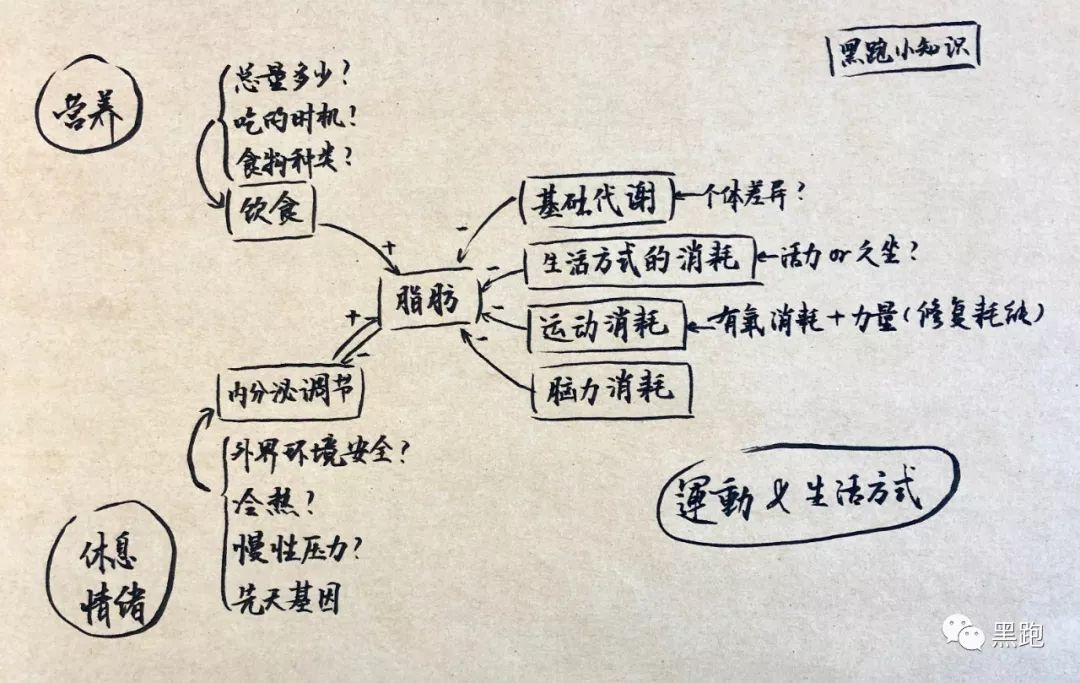 黑跑小知识
营养
总量多少?
吃的时机!
食物种类?
饮食
+
脂肪
基础代谢
个体差异?
-
生活方式的消耗
活力or久坐?
-
运动消耗
有氧消耗+力量(修复耗能)
-
脑力消耗
-
+
-
内分泌调节
外界环境安全?
冷热?
慢性压力?
先天基因
休息
情绪
運動&生活方式
黑跑